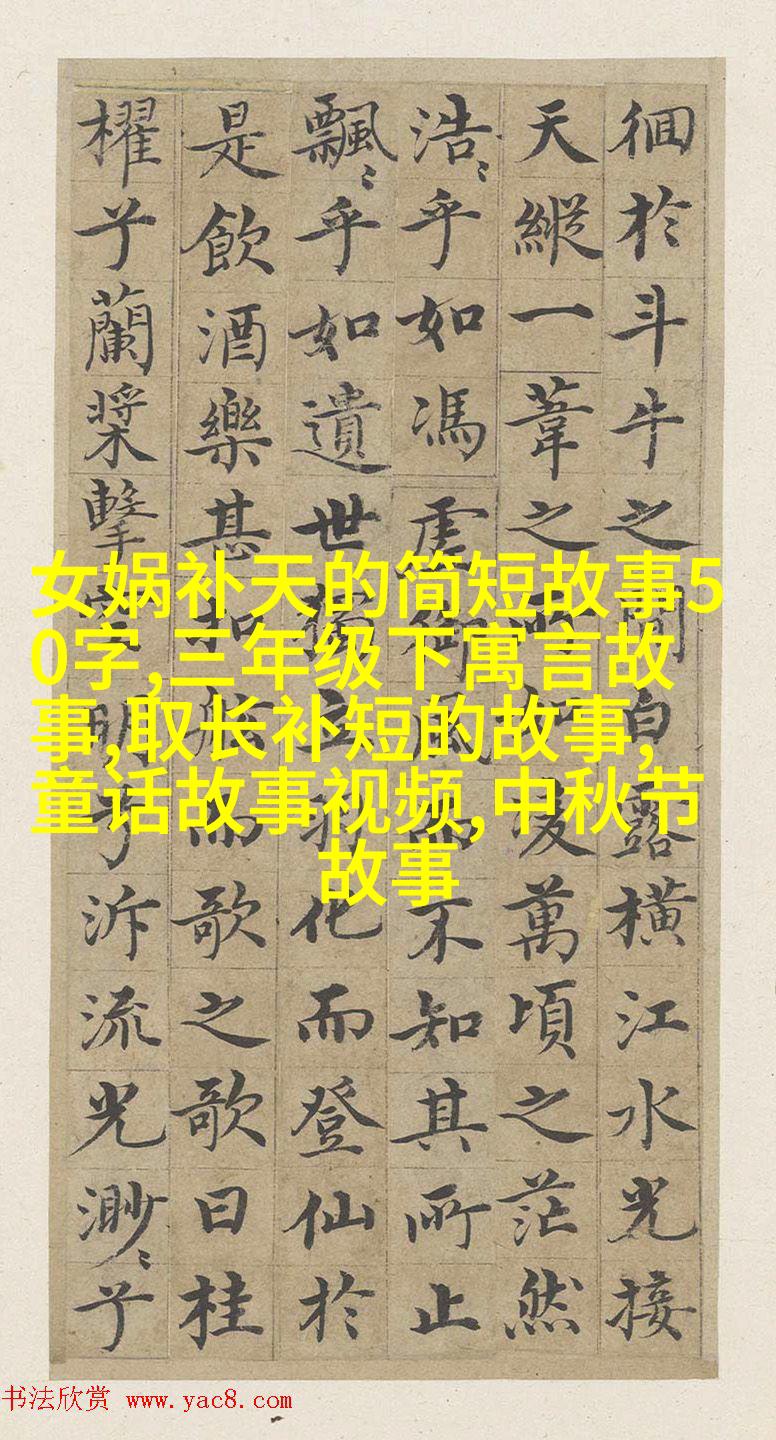 徊於斗牛之間白露橫江水光接
天縱一葦之所如凌萬頃之茫然
浩〻乎如馮虛御風而不知其所止
飄〻乎如遺世獨立羽化而登仙於
是飲酒樂甚扣舷而歌之歌曰桂
櫂兮蘭槳擊空明兮泝流光渺〻兮
女娲补天的简短故事5
0字,三年级下寓言故
事,取长补短的故事,
童话故事视频,中秋节
故事
书法欣赏 www.yac8.com